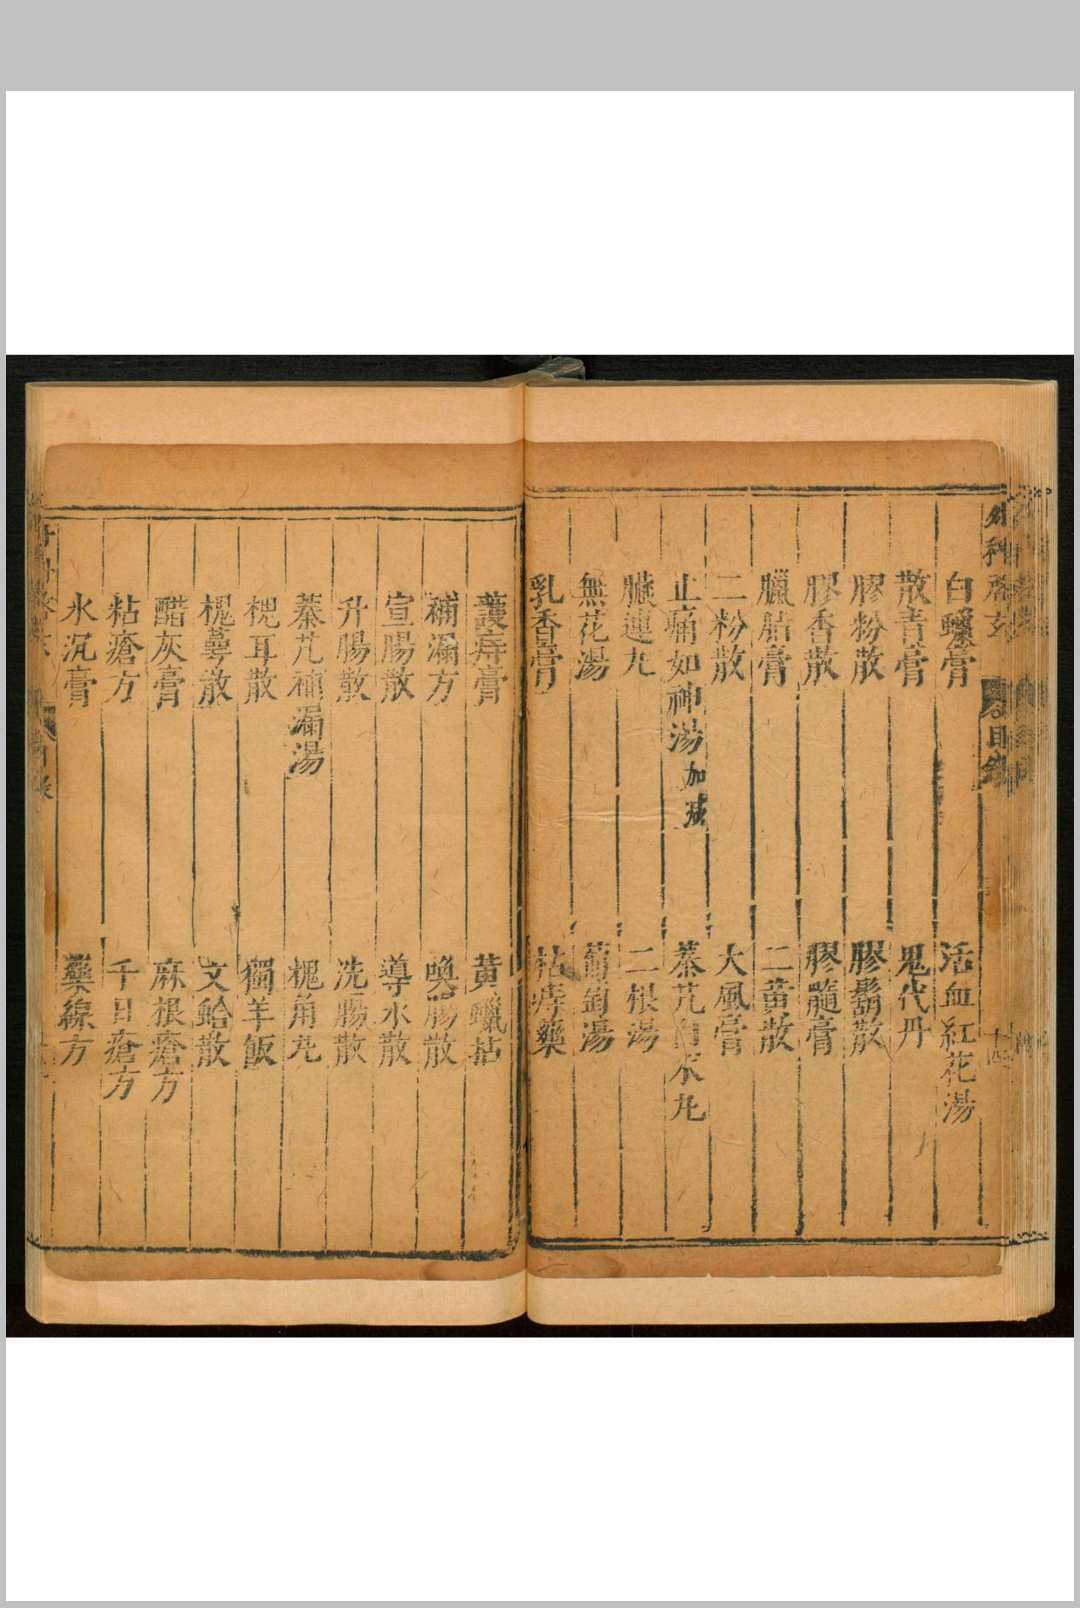 白蠟膏
活血紅花湯
散青膏
鬼代丹
膠粉散
膠鬍散
膠香散
膠髓膏
臘脂膏
二黃散
二粉散
大風膏
止痛如神湯加減
蓁艽白朮丸
臟連丸
二根湯
無花湯
葡萄湯
乳香膏
枯痔藥
護痔膏
黃蠟拈
補漏方
喚腸散
宣腸散
導水散
升腸散
洗腸散
蓁艽補漏湯
槐角丸
槐耳散
獨羊飯
槐萼散
文蛤散
醋灰膏
麻根瘡方
粘瘡方
千日瘡方
水沉膏
藥線方
目錄